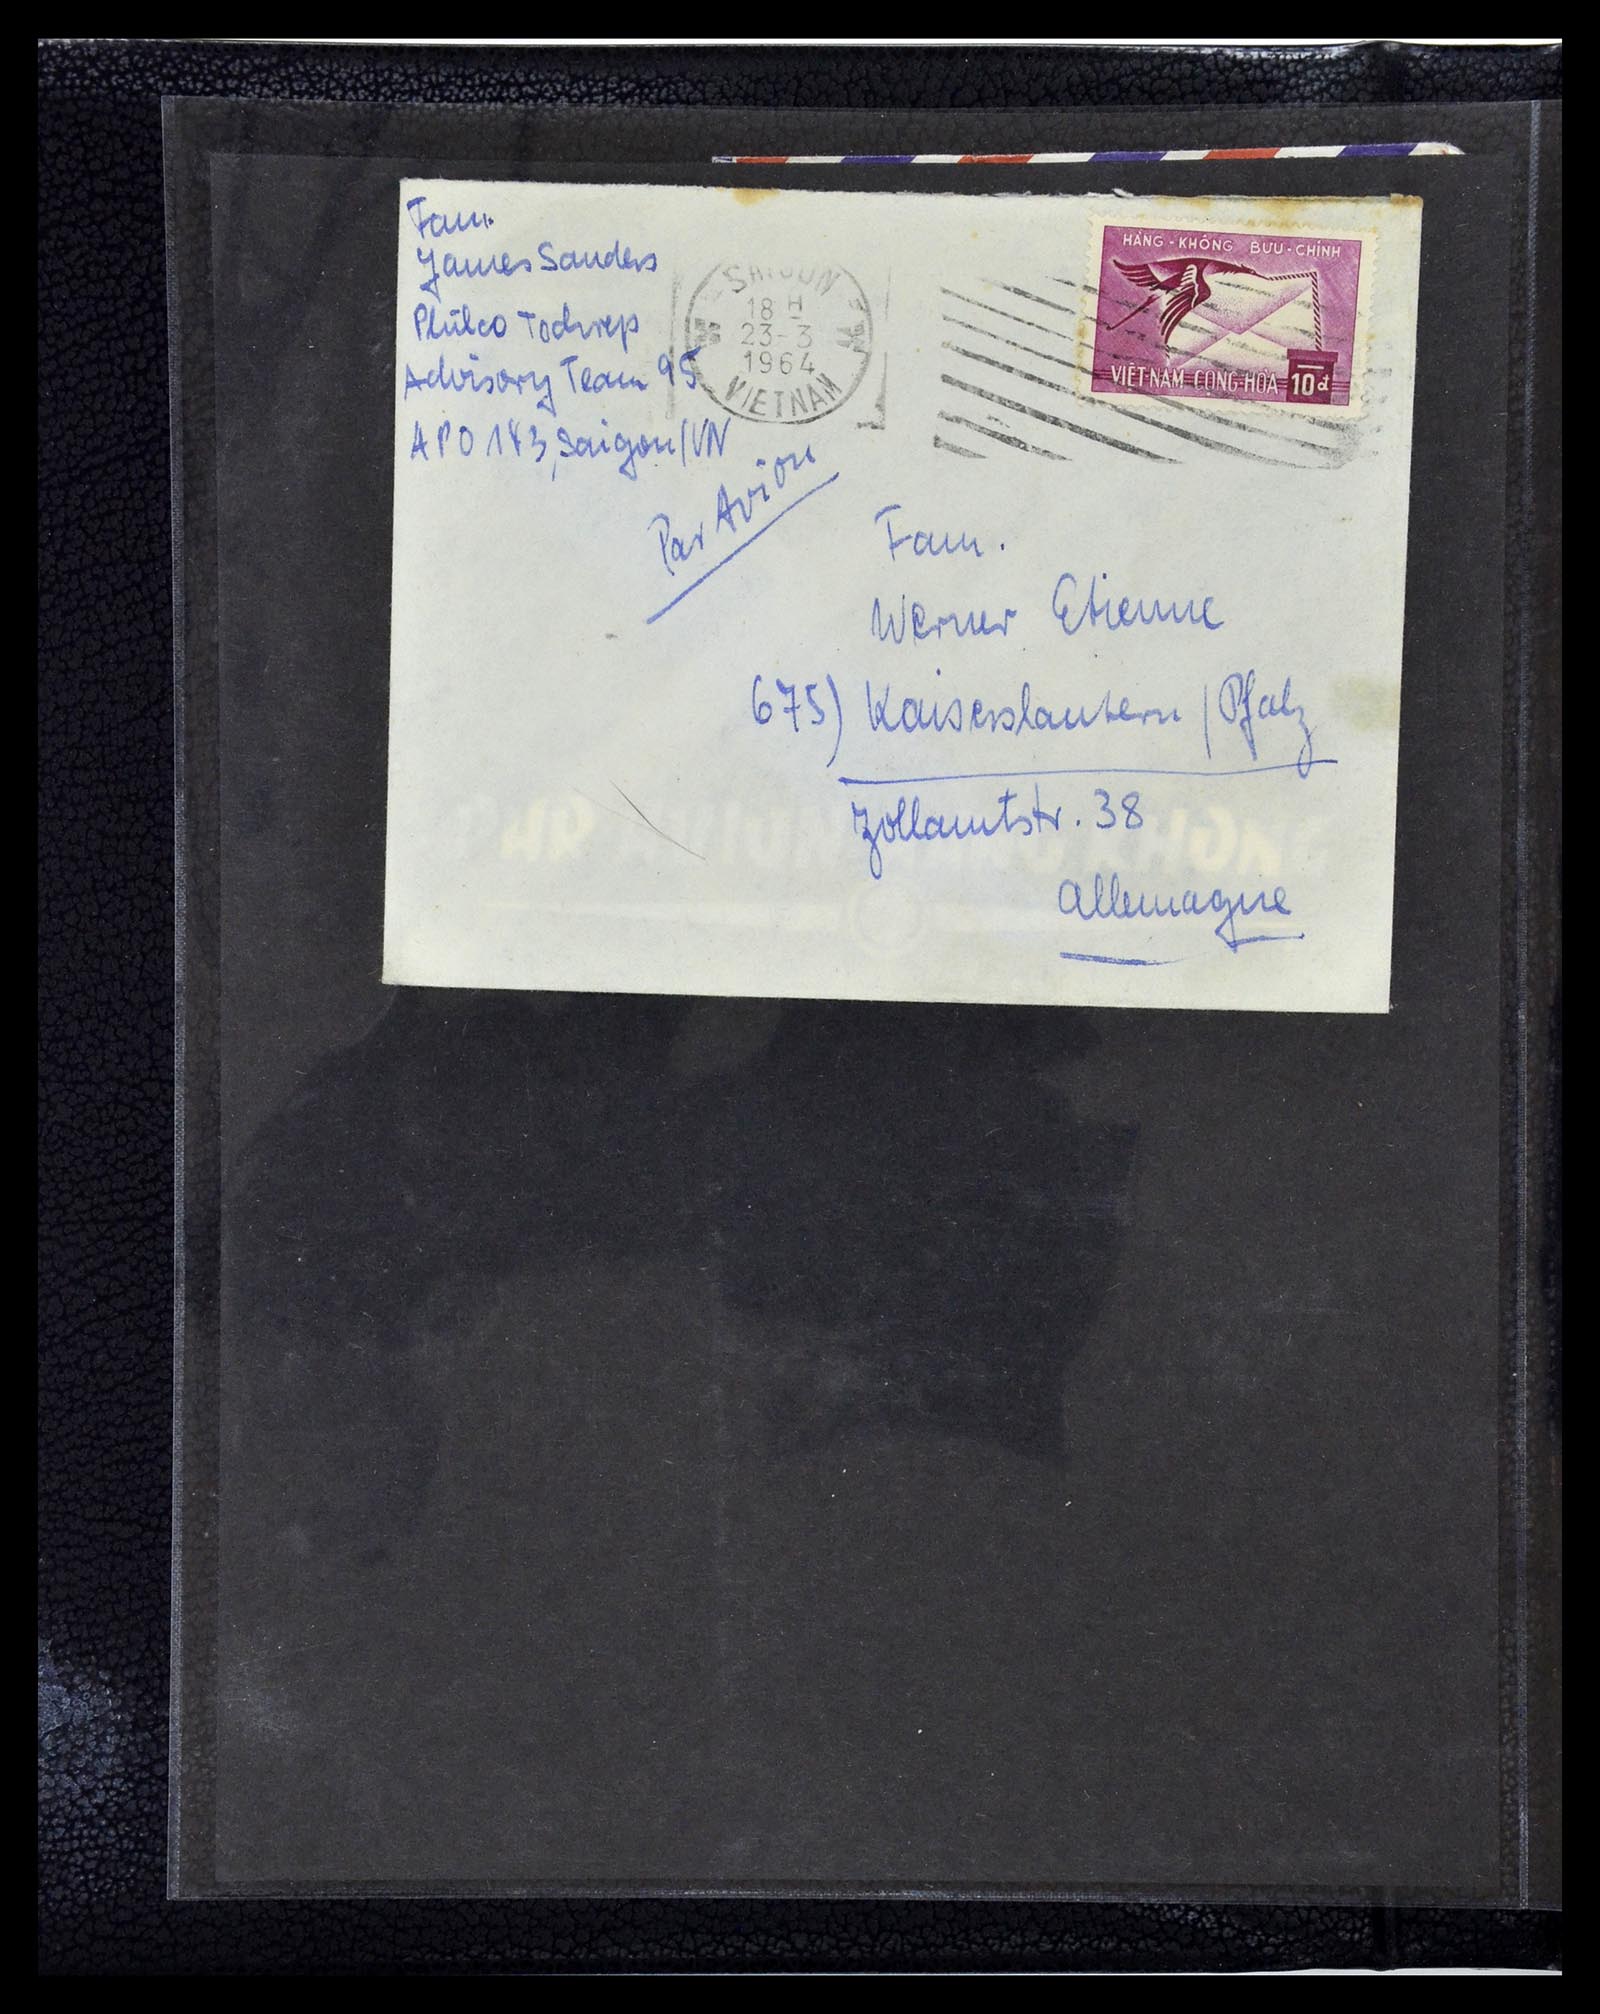 Fam.
James Sanders
Philco Techrep
Advisory Team 95
APO 143, Saigon/VN
Par Avion
SAIGON
18 H
23-3
1964
VIETNAM
HÀNG-KHÔNG BƯU-CHÍNH
VIỆT-NAM CỘNG-HÒA 10đ
Fam.
Werner Etienne
675) Kaiserslautern / Pfalz
Zollamtstr. 38
Allemagne